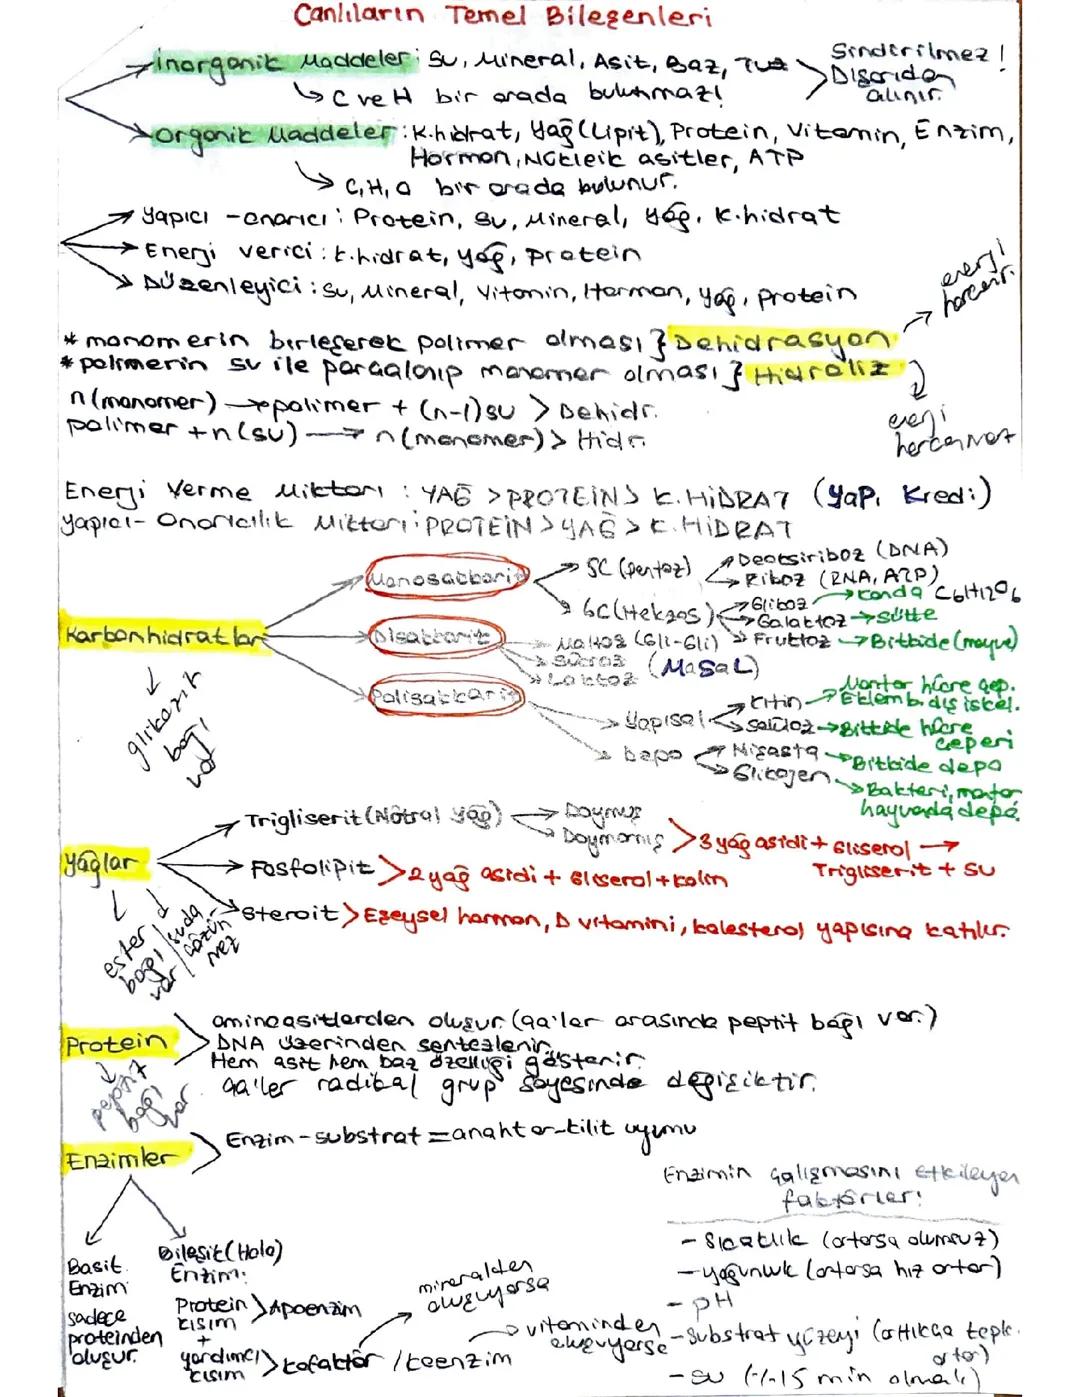 Canlıların Temel Bileşenleri
İnorganik Maddeler: Su, Mineral, Asit, Baz, Tuz
Sindirilmez!
Dışarıdan
alınır.
C ve H bir arada bulunmaz!
Organik Maddeler: K.hidrat, Yağ (Lipit), Protein, Vitamin, Enzim,
Hormon, Nükleik asitler, ATP
C, H, O bir arada bulunur.
Yapıcı-onarıcı: Protein, Su, Mineral, Yağ, K.hidrat
Enerji verici: K.hidrat, yağ, protein
Düzenleyici: Su, Mineral, Vitamin, Hormon, Yağ, Protein
* monomerin birleşerek polimer olması } Dehidrasyon
enerji
harcanır.
* polimerin su ile parçalanıp monomer olması } Hidroliz
enerji
harcanmaz
n(monomer) → polimer + (n-1)su > Dehidr.
polimer + n(su) → n(monomer) > Hidr.
Enerji Verme Miktarı: YAĞ > PROTEİN > K.HİDRAT (YaPı Kredi)
Yapıcı-Onarıcılık Miktarı: PROTEİN > YAĞ > K.HİDRAT
Karbonhidratlar
glikozit
bağı
var
Monosakkarit
5C (pentoz)
Deoksiriboz (DNA)
Riboz (RNA, ATP)
6C (Heksos)
Glikoz → kanda C6H12O6
Galaktoz → sütte
Fruktoz → Bitkide (meyve)
Disakkarit
Maltoz (Gli-Gli)
Sükroz (MaSaL)
Laktoz
Polisakkarit
Yapısal
Kitin → Mantar hücre çep.
Eklemb. dış iskel.
Selüloz → Bitkide hücre
çeperi
Depo
Nişasta → Bitkide depo
Glikojen → Bakteri, mantar
hayvanda depo.
Yağlar
ester
bağı
var
suda
çözün
mez
Trigliserit (Nötral yağ)
Doymuş
Doymamış
3 yağ asidi + Gliserol →
Trigliserit + su
Fosfolipit > 2 yağ asidi + Gliserol + kolin
Steroit > Eşeysel hormon, D vitamini, kolesterol yapısına katılır.
Protein
peptit
bağı
var
aminoasitlerden oluşur. (aa'ler arasında peptit bağı var.)
DNA üzerinden sentezlenir.
Hem asit hem baz özelliği gösterir.
aa'ler radikal grup sayesinde değişiktir.
Enzimler
Enzim-substrat = anahtar-kilit uyumu
Basit
Enzim
sadece
proteinden
oluşur.
Bileşik (Holo)
Enzim:
Protein
kısım > Apoenzim
+
yardımcı
kısım > kofaktör / koenzim
mineralden
oluşuyorsa
vitaminden
oluşuyorsa
Enzimin çalışmasını etkileyen
faktörler:
- Sıcaklık (artarsa olumsuz)
- yoğunluk (artarsa hız artar)
- pH
- Substrat yüzeyi (arttıkça tepk.
artar)
- su (%15 min olmalı)